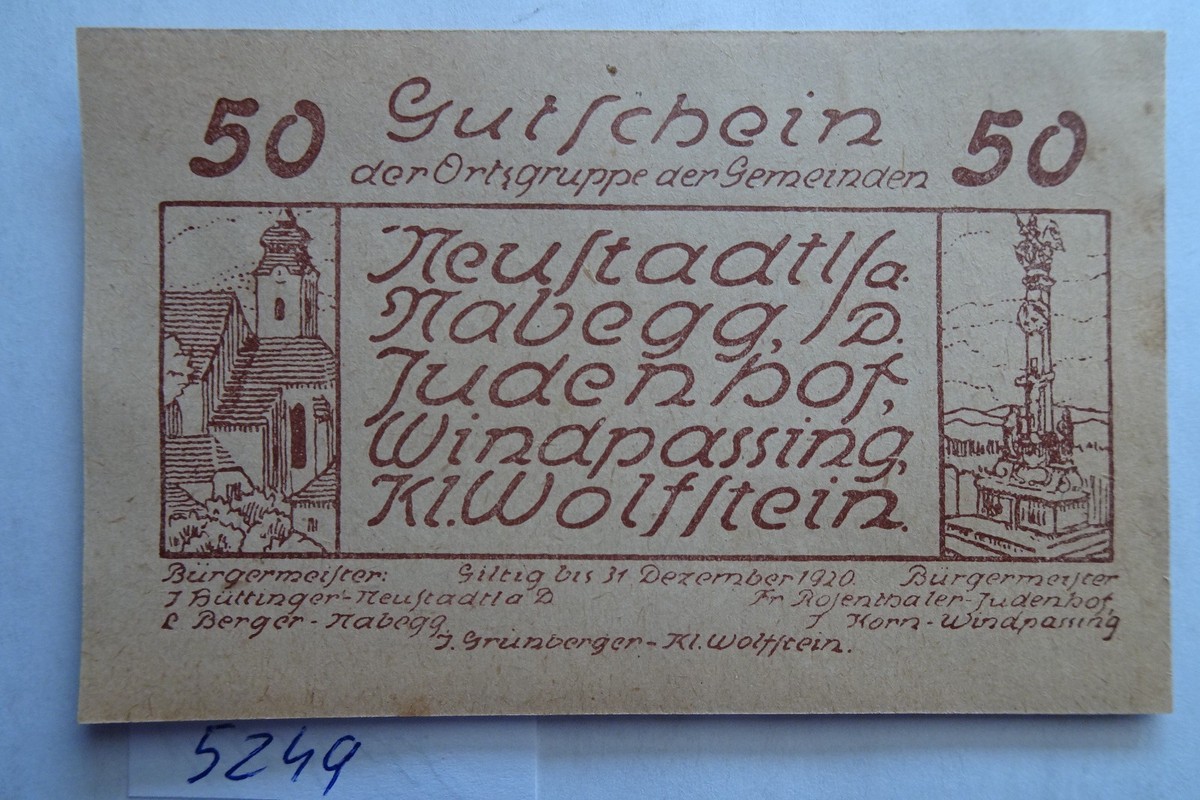 50 Gutschein 50
der Ortsgruppe der Gemeinden
Neustadtl/a.
Nabegg, /D.
Judenhof,
Windpassing,
Kl. Wolfstein.
Bürgermeister: Giltig bis 31 Dezember 1920. Bürgermeister
J Hüttinger-Neustadtl a D Fr Rosenthaler-Judenhof,
L Berger-Nabegg, J Korn-Windpassing
J. Grünberger-Kl. Wolfstein.
5249